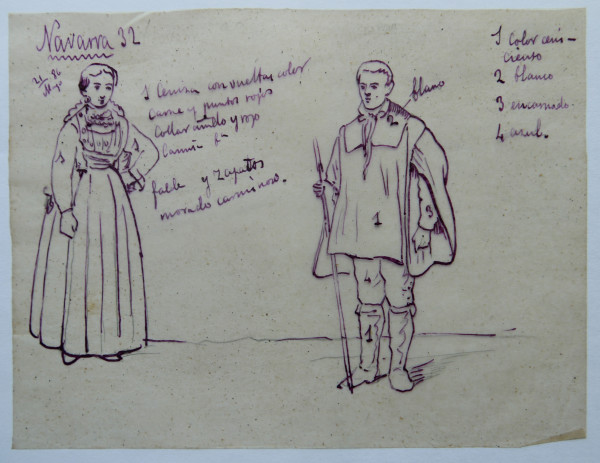 Navarra 32
21 96
Mayo
1 Ceniza con vueltas color
carne y puntos rojos
Collar verde y rojo
Camisa
falda y zapatos
morado carminoso.
blanco
1 Color ceni-
ciento
2 blanco
3 encarnado.
4 azul.
1
2
3
4
1